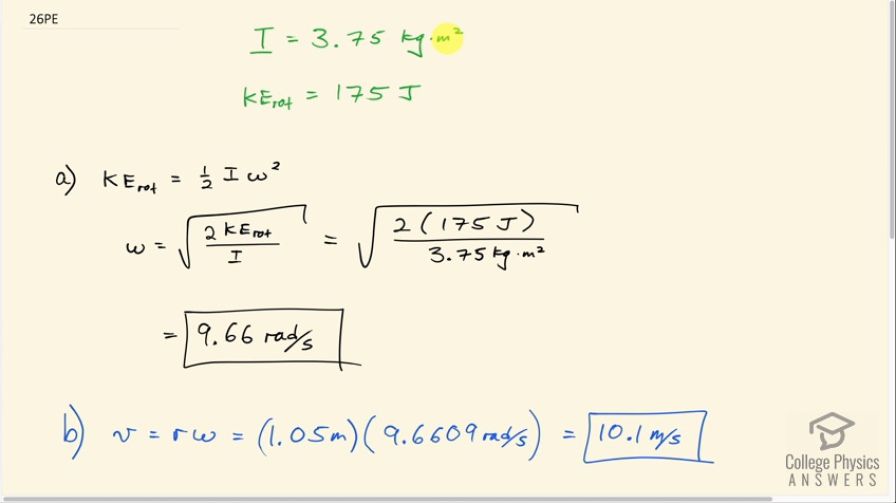 26PE
I = 3.75 kg·m²
KE_rot = 175 J
a) KE_rot = 1/2 I ω²
ω = √(2 KE_rot / I) = √(2 (175 J) / 3.75 kg·m²)
= 9.66 rad/s
b) v = rω = (1.05m)(9.6609 rad/s) = 10.1 m/s
College Physics
ANSWERS